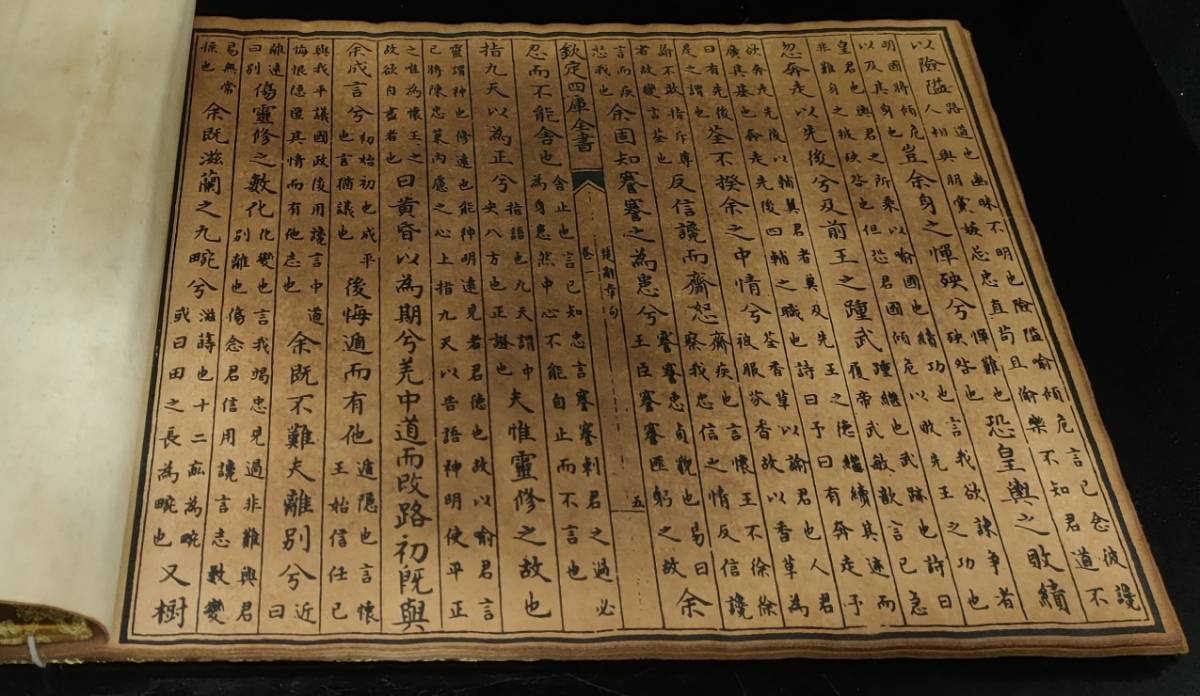 以險隘路道也幽昧不明也險隘喻傾危言已念彼讒人相與朋黨嫉忌忠直苟且偷樂不知君道不
明國將傾危以及其身也豈余身之憚殃兮憚難也殃咎也恐皇輿之敗績
皇君也輿君之所乘以喻國也績功也言我欲諫爭者非難身之被殃咎也但恐君國傾危以敗先王之功也
忽奔走以先後兮及前王之踵武踵繼也武跡也詩曰履帝武敏歆言已急
欲奔走先後以輔翼君者冀及先王之德繼續其迹而廣其基也奔走先後四輔之職也詩曰予曰有奔走予
曰有先後是之謂也荃不揆余之中情兮荃香草以諭君也人君被服芬香故以香草為
諭不敢指斥尊者故變言荃也反信讒而齋怒齋疾也言懷王不徐徐察我忠信之情反信讒
言而疾怒我也余固知謇謇之為患兮謇謇忠貞貌也易曰王臣謇謇匪躬之故余
欽定四庫全書
楚辭章句
卷一
五
忍而不能舍也舍止也言已知忠言謇謇刺君之過必為身患然中心不能自止而不言也
指九天以為正兮指語也九天謂中央八方也正證也夫惟靈修之故也
靈謂神也修遠也能神明遠見者君德也故以喻君言已將陳忠策內慮之心上指九天以告語神明使平正
之惟為懷王之故欲自盡者也曰黄昏以為期兮羌中道而改路初既與
余成言兮初始初也成平也言猶議也後悔遁而有他遁隱也言懷王始信任已
與我平議國政後用讒言中道悔恨隱匿其情而有他志也余既不難夫離別兮近曰
離遠曰別傷靈修之數化化變也言我竭忠見過非難與君別離也傷念君信用讒言志數變
易無常操也余既滋蘭之九畹兮滋蒔也十二畝為畹或曰田之長為畹也又樹